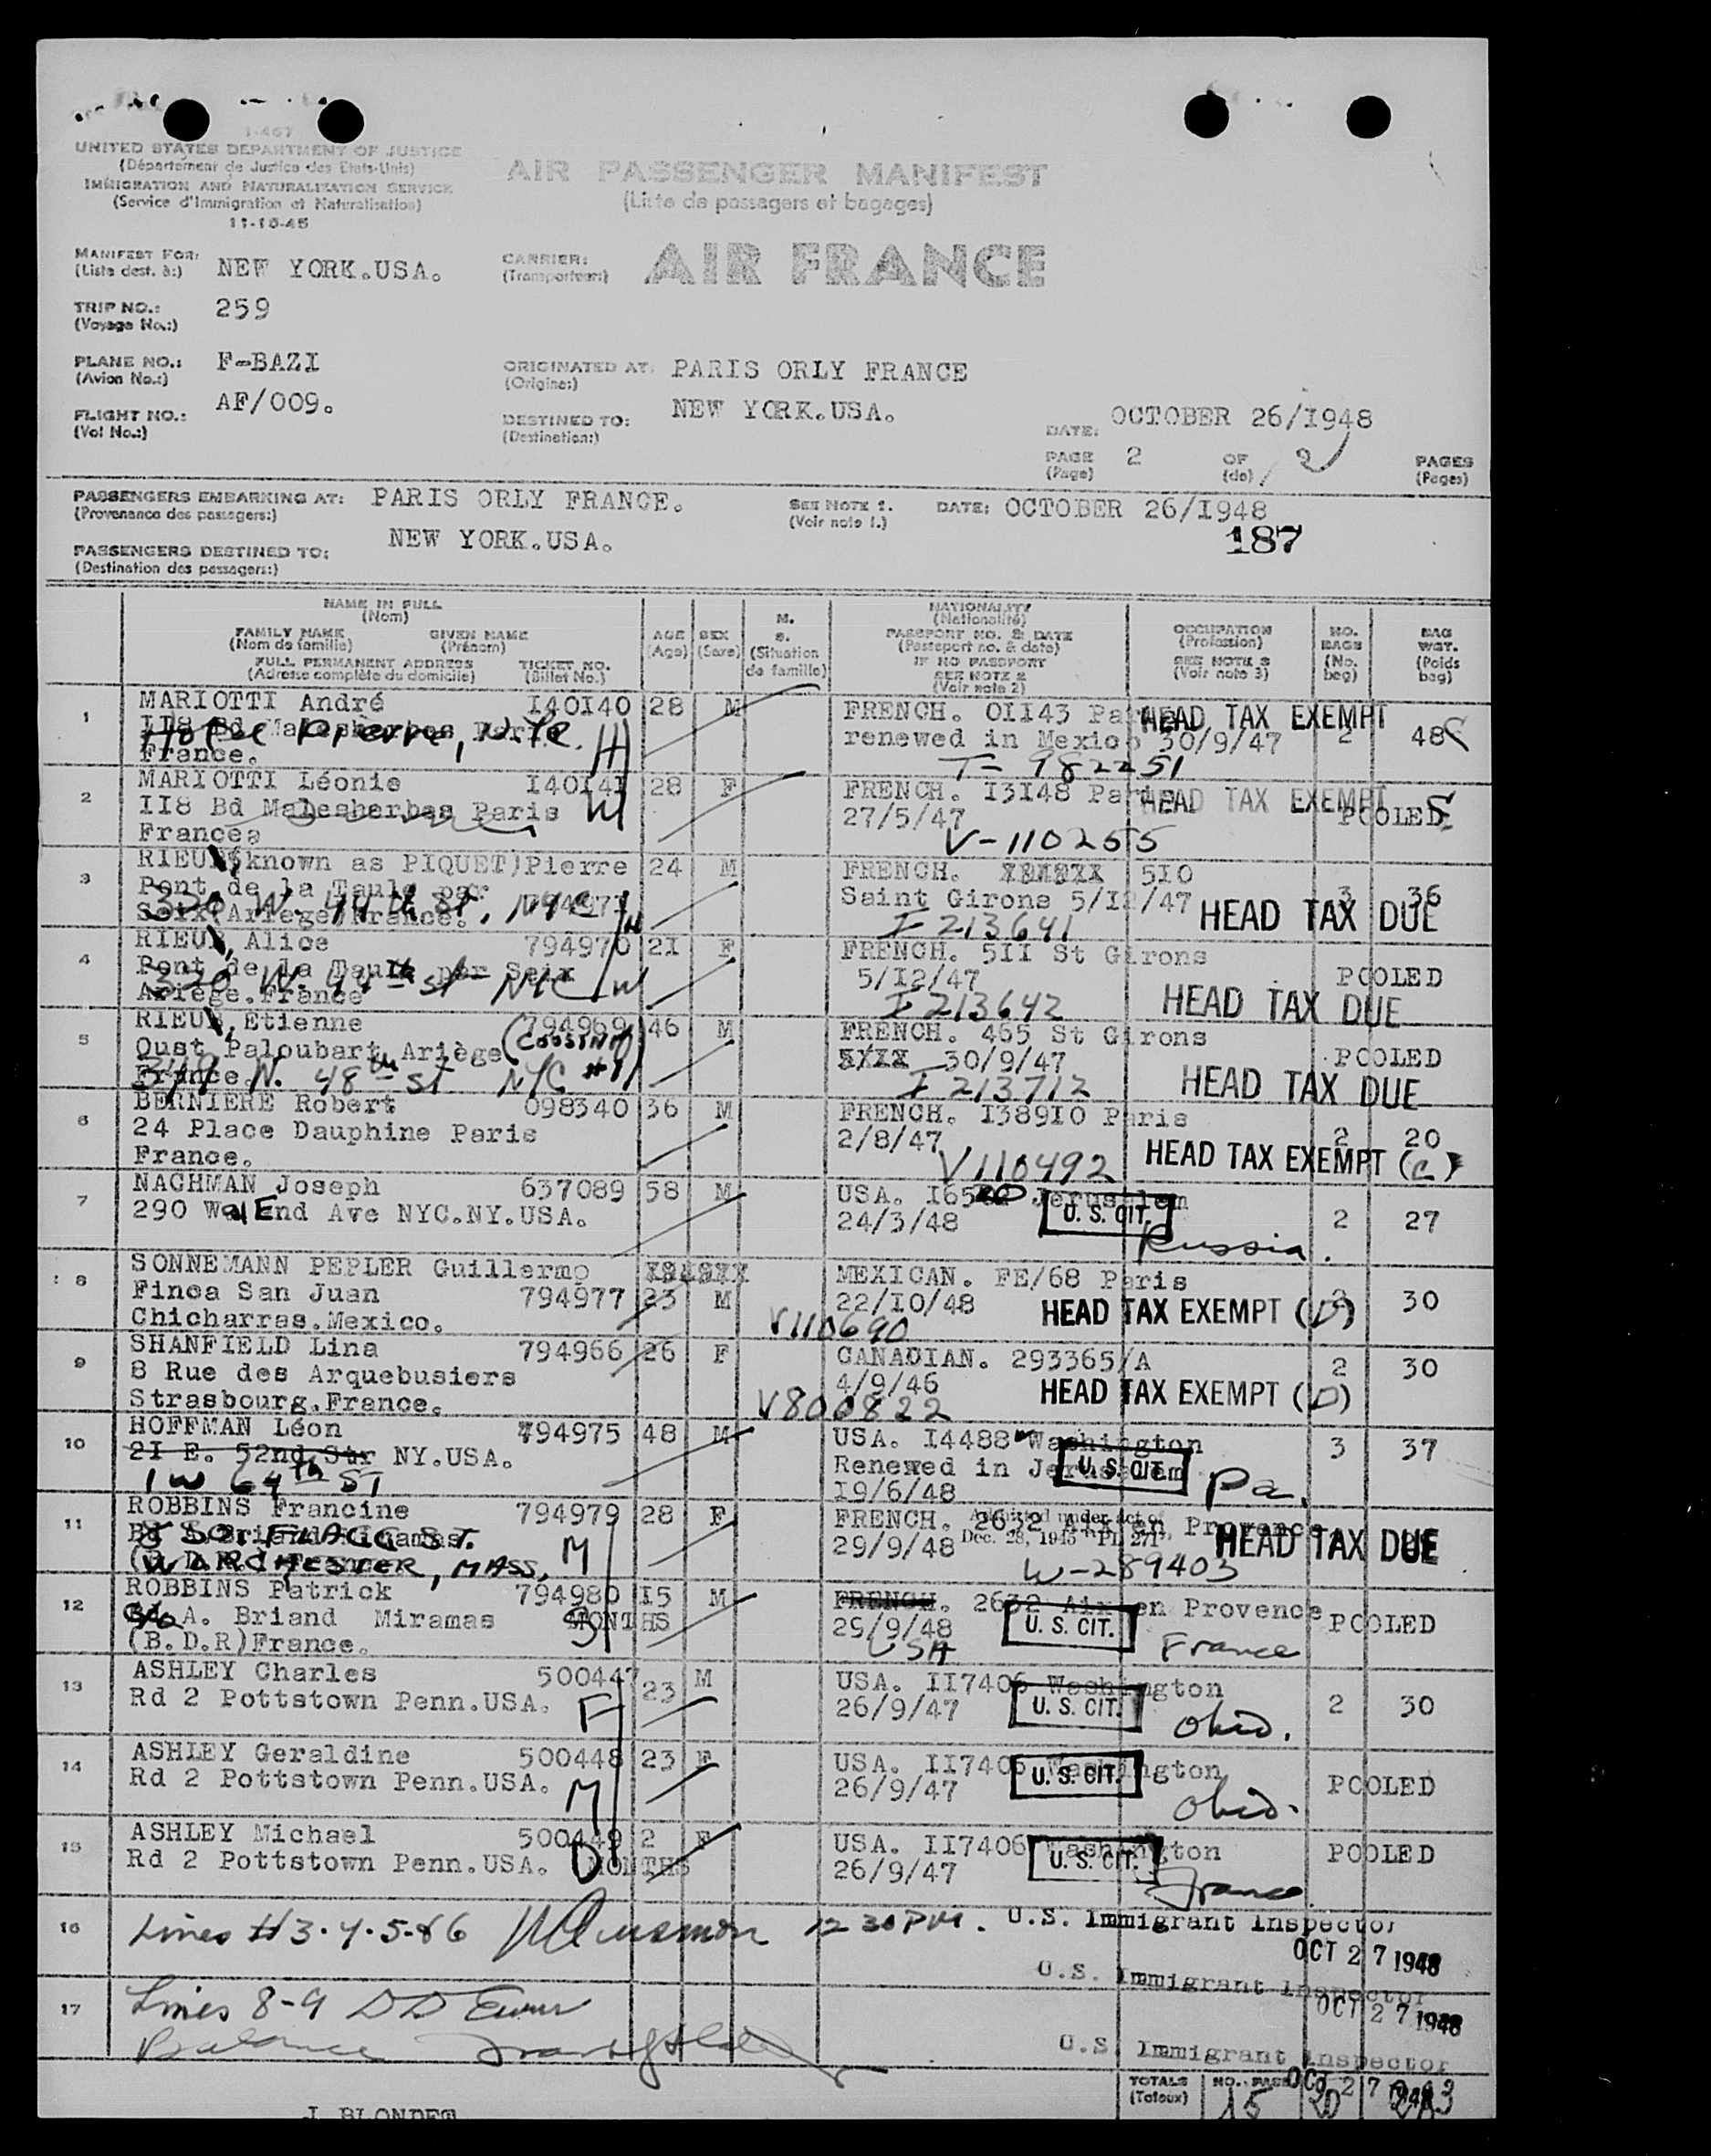 I-467
UNITED STATES DEPARTMENT OF JUSTICE
(Département de Justice des Etats-Unis)
IMMIGRATION AND NATURALIZATION SERVICE
(Service d'Immigration et Naturalisation)
11-10-45
AIR PASSENGER MANIFEST
(Liste de passagers et bagages)
MANIFEST FOR:
(Liste dest. à:)
NEW YORK.USA.
CARRIER:
(Transporteur:)
AIR FRANCE
TRIP NO.:
(Voyage No.:)
259
PLANE NO.:
(Avion No.:)
F-BAZI
ORIGINATED AT:
(Origine:)
PARIS ORLY FRANCE
FLIGHT NO.:
(Vol No.:)
AF/009.
DESTINED TO:
(Destination:)
NEW YORK.USA.
DATE: OCTOBER 26/I948
PAGE 2 OF 2 PAGES
(Page) (de) (Pages)
PASSENGERS EMBARKING AT: PARIS ORLY FRANCE.
(Provenance des passagers:)
SEE NOTE 1.
(Voir note 1.)
DATE: OCTOBER 26/I948
187
PASSENGERS DESTINED TO: NEW YORK.USA.
(Destination des passagers:)
NAME IN FULL
(Nom)
FAMILY NAME GIVEN NAME
(Nom de famille) (Prénom)
FULL PERMANENT ADDRESS TICKET NO.
(Adresse complète du domicile) (Billet No.)
AGE
(Age)
SEX
(Sexe)
M.
S.
(Situation
de famille)
NATIONALITY
(Nationalité)
PASSPORT NO. & DATE
(Passeport no. & date)
IF NO PASSPORT
SEE NOTE 2
(Voir note 2)
OCCUPATION
(Profession)
SEE NOTE 3
(Voir note 3)
NO.
BAGS
(No.
bag)
BAG
WGT.
(Poids
bag)
1 MARIOTTI André I40I40 28 M FRENCH. OII43 HEAD TAX EXEMPT
II8 Bd Malesherbes Paris renewed in Mexico 30/9/47 2 48
Hotel Pierre, NYC. H
France. T- 982251
2 MARIOTTI Léonie I40I4I 28 F FRENCH. I3I48 Paris HEAD TAX EXEMPT
II8 Bd Malesherbes Paris W 27/5/47 POOLED
France V-110255
3 RIEU (known as PIQUET)Pierre 24 M FRENCH. 5I0
Pont de la Taule par Saint Girons 5/I2/47 3 36
320 W. 44th St, NYC H HEAD TAX DUE
Seix(Ariege)France. I 213641
4 RIEU, Alice 794970 2I F FRENCH. 5II St Girons
Pont de la Taule par Seix 5/I2/47 POOLED
320 W. 44th St NYC W HEAD TAX DUE
Ariège.France I 213642
5 RIEU, Etienne 794969 46 M FRENCH. 465 St Girons
Oust Paloubart Ariège (COUSIN 30/9/47 POOLED
48th St NYC HEAD TAX DUE
France. I 213712
6 BERNIERE Robert 098340 36 M FRENCH. I389I0 Paris
24 Place Dauphine Paris 2/8/47 2 20
France. V110492 HEAD TAX EXEMPT (C)
7 NACHMAN Joseph 637089 58 M USA. Jerusalem
290 W End Ave NYC.NY.USA. 24/3/48 U.S. CIT. 2 27
Russia.
8 SONNEMANN PEPLER Guillermo MEXICAN. FE/68 Paris
Finca San Juan 794977 23 M 22/I0/48 2 30
Chicharras.Mexico. V110690 HEAD TAX EXEMPT (D)
9 SHANFIELD Lina 794966 26 F CANADIAN. 293365/A 2 30
8 Rue des Arquebusiers 4/9/46
Strasbourg.France. V800822 HEAD TAX EXEMPT (D)
10 HOFFMAN Léon 794975 48 M USA. I4488 Washington 3 37
2I E. 52nd Str NY.USA. Renewed in Jerusalem U.S. CIT.
1 W 64th ST I9/6/48 Pa.
11 ROBBINS Francine 794979 28 F FRENCH. 2632 Aix en Provence
8 SO. FLAGG ST. Admitted under act of
29/9/48 Dec. 28, 1945 PL 271 HEAD TAX DUE
WORCHESTER, MASS, M W-289403
12 ROBBINS Patrick 794980 I5 M FRENCH. 2632 Aix en Provence
A. Briand Miramas MONTHS 29/9/48 U.S. CIT. POOLED
(B.D.R)France. S USA France
13 ASHLEY Charles 500447 23 M USA. II7406 Washington
Rd 2 Pottstown Penn.USA. F 26/9/47 U.S. CIT. 2 30
Ohio.
14 ASHLEY Geraldine 500448 23 F USA. II7406 Washington
Rd 2 Pottstown Penn.USA. M 26/9/47 U.S. CIT. POOLED
Ohio.
15 ASHLEY Michael 500449 2 F USA. II7406 Washington POOLED
Rd 2 Pottstown Penn.USA. D MONTHS 26/9/47 U.S. CIT.
France
16 Lines #3.4.5.&6 12 30 PM. U.S. Immigrant Inspector
OCT 27 1948
U.S. Immigrant Inspector
17 Lines 8-9 OCT 27 1948
Balance U.S. Immigrant Inspector
OCT 27 1948
TOTALS
(Totaux)
NO. PASS 15 20
J BLONDET